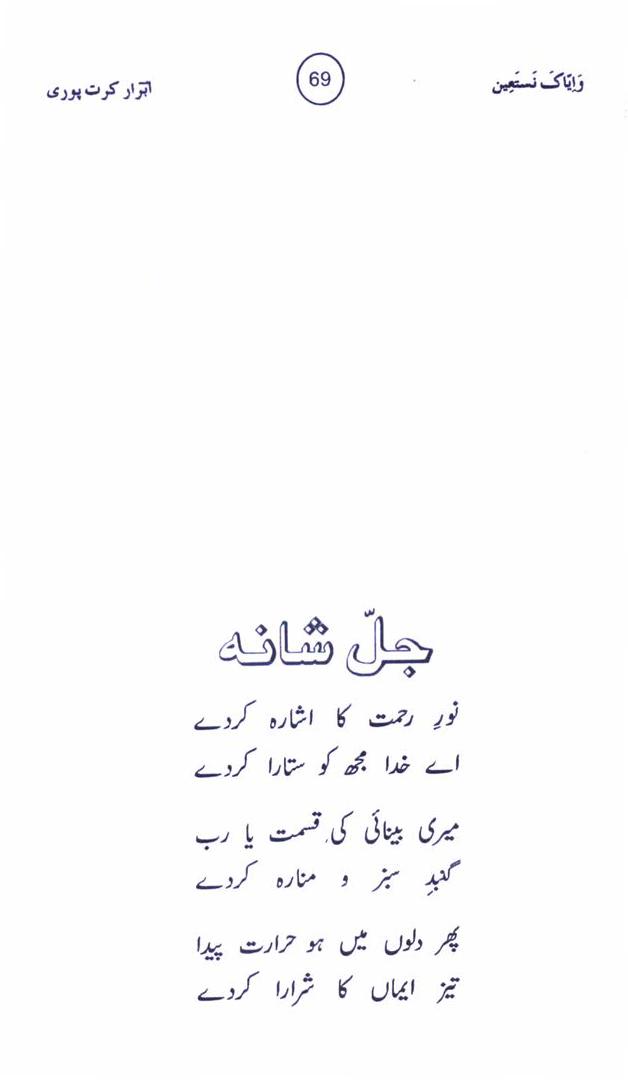 وَاِیّاکَ نَستَعِین 69 ابرار کرت پوری
جلّ شانہ
نورِ رحمت کا اشارہ کردے
اے خدا مجھ کو ستارا کردے
میری بینائی کی قسمت یا رب
گنبدِ سبز و منارہ کردے
پھر دلوں میں ہو حرارت پیدا
تیز ایماں کا شرارا کردے